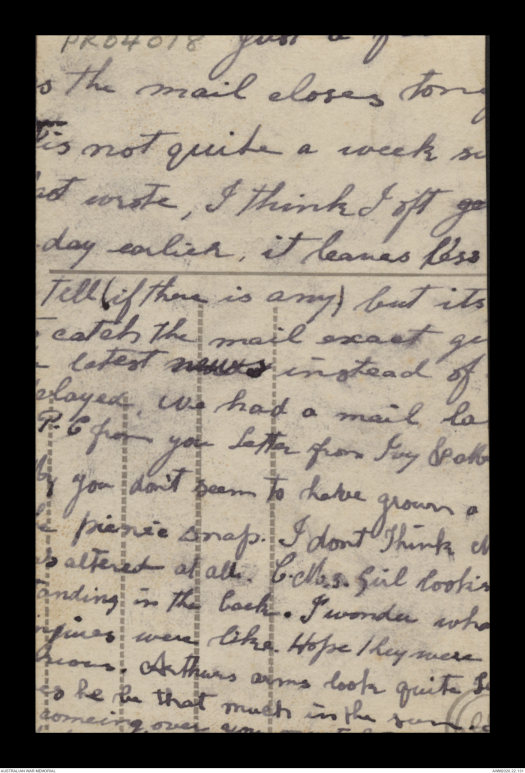 PR04018 just a
the mail closes
not quite a week
wrote, I think I oft
day earlier, it leaves less
Tell (if there is any) but its
catch the mail exact
latest news instead of
we had a mail
P.C from you Letter from Ivy
you dont seem to have grown a
picnic snap. I dont Think
altered at all. Girl
in the back. I wonder
were like. Hope They were
Arthurs arms look quite
he be that much in the sun.
comeing over
AUSTRALIAN WAR MEMORIAL